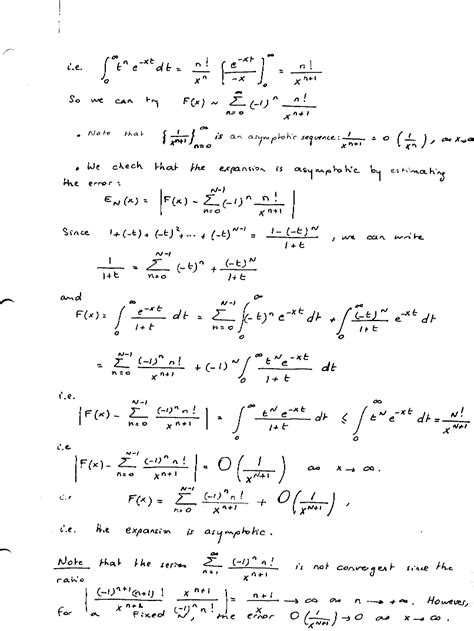 i.e. ∫₀^∞ tⁿ e^{-xt} dt = n!/xⁿ [e^{-xt}/-x]₀^∞ = n!/x^{n+1}
So we can try F(x) ~ Σ_{n=0}^∞ (-1)ⁿ n!/x^{n+1}
• Note that {1/x^{n+1}}_{n=0}^∞ is an asymptotic sequence: 1/x^{n+1} = o(1/xⁿ), as x→∞
• We check that the expansion is asymptotic by estimating
the error:
E_N(x) = |F(x) - Σ_{n=0}^{N-1} (-1)ⁿ n!/x^{n+1}|
Since 1+(-t)+(-t)²+...+(-t)^{N-1} = 1-(-t)^N/1+t, we can write
1/1+t = Σ_{n=0}^{N-1} (-t)ⁿ + (-t)^N/1+t
and
F(x) = ∫₀^∞ e^{-xt}/1+t dt = Σ_{n=0}^{N-1} ∫₀^∞ (-t)ⁿ e^{-xt} dt + ∫₀^∞ (-t)^N/1+t e^{-xt} dt
= Σ_{n=0}^{N-1} (-1)ⁿ n!/x^{n+1} + (-1)^N ∫₀^∞ t^N e^{-xt}/1+t dt
i.e.
|F(x) - Σ_{n=0}^{N-1} (-1)ⁿ n!/x^{n+1}| = ∫₀^∞ t^N e^{-xt}/1+t dt ≤ ∫₀^∞ t^N e^{-xt} dt = N!/x^{N+1}
i.e
|F(x) - Σ_{n=0}^{N-1} (-1)ⁿ n!/x^{n+1}| = O(1/x^{N+1}) as x → ∞.
i.e F(x) = Σ_{n=0}^{N-1} (-1)ⁿ n!/x^{n+1} + O(1/x^{N+1}),
i.e. the expansion is asymptotic.
Note that the series Σ_{n=1}^∞ (-1)ⁿ n!/x^{n+1} is not convergent since the
ratio
|(-1)^{n+1}(n+1)!/x^{n+2} x^{n+1}/(-1)ⁿ n!| = n+1/x → ∞ as n → +∞. However,
for a fixed N, the error O(1/x^{N+1}) → 0 as x → ∞.